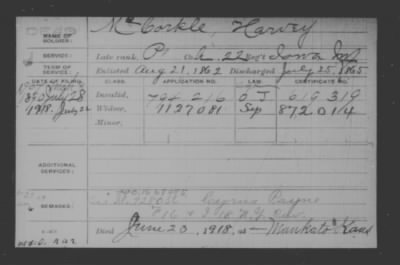 DEAD
NAME OF SOLDIER: McCorkle, Harvey
SERVICE: Late rank, Pt Co. H, 22 Reg't Iowa Inf
TERM OF SERVICE: Enlisted Aug 21, 1862 Discharged July 25, 1865
DATE OF FILING. CLASS. APPLICATION NO. LAW. CERTIFICATE NO.
July 28 Invalid, 794 216 O J 619 319
1918. July 22 Widow, 1127 081 Sep 872 014
Minor,
ADDITIONAL SERVICES:
Cyrus Payne
REMARKS:
Died June 20, 1918, at Mankato Kans